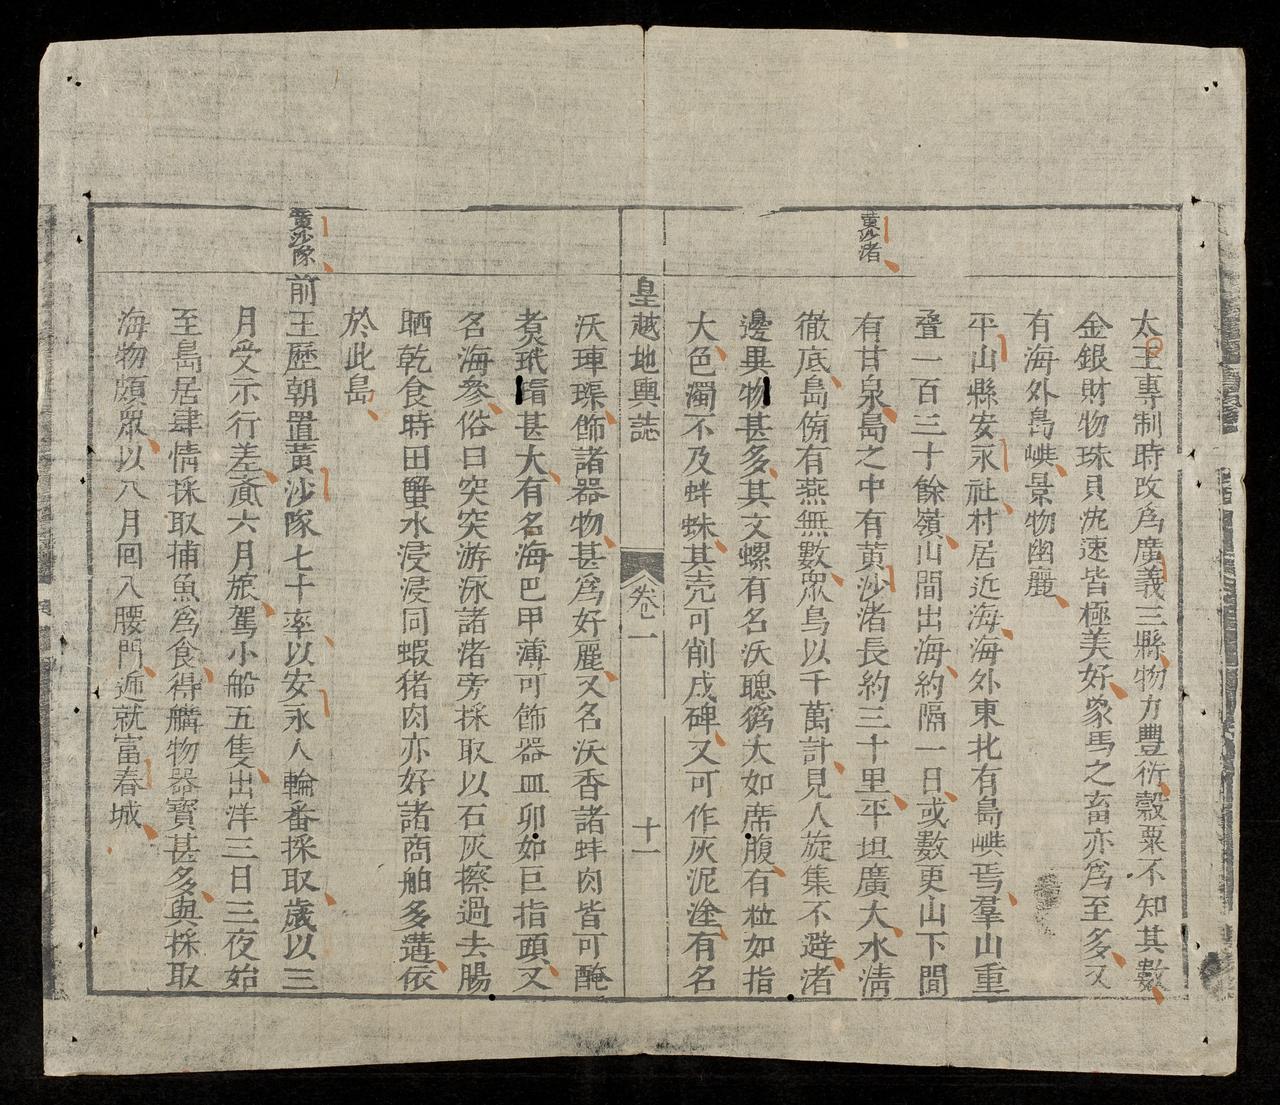 太王專制時改爲廣義三縣物力豊衍穀粟不知其數
金銀財物珠貝洸速皆極美好象馬之畜亦爲至多又
有海外島㠗景物幽麗
黄沙渚
平山縣安永社村居近海海外東北有島㠗焉羣山重
叠一百三十餘嶺山間出海約隔一日或數更山下間
有甘泉島之中有黄沙渚長約三十里平坦廣大水淸
徹底島傍有燕無數眾鳥以千萬計見人旋集不避渚
邊異物甚多其文螺有名沃聰㺔大如席腹有粒如指
大色濁不及蚌蛛其壳可削成碑又可作灰泥塗有名
皇越地輿誌
卷一
十一
沃琿璖飾諸器物甚爲好麗又名沃香諸蚌肉皆可醃
煑玳瑁甚大有名海巴甲薄可飾器皿卯如巨指頭又
名海參俗曰突突游泳諸渚旁採取以石灰擦過去腸
晒乾食時田蟹水浸浸同蝦猪肉亦好諸商舶多遘依
於此島
黄沙隊
前王歷朝置黃沙隊七十率以安永人輪番採取歲以三
月受示行差齎六月旅駕小船五隻出洋三日三夜始
至島居肆情採取捕魚爲食得艚物器寳甚多與採取
海物頗眾以八月囘入腰門逓就富春城